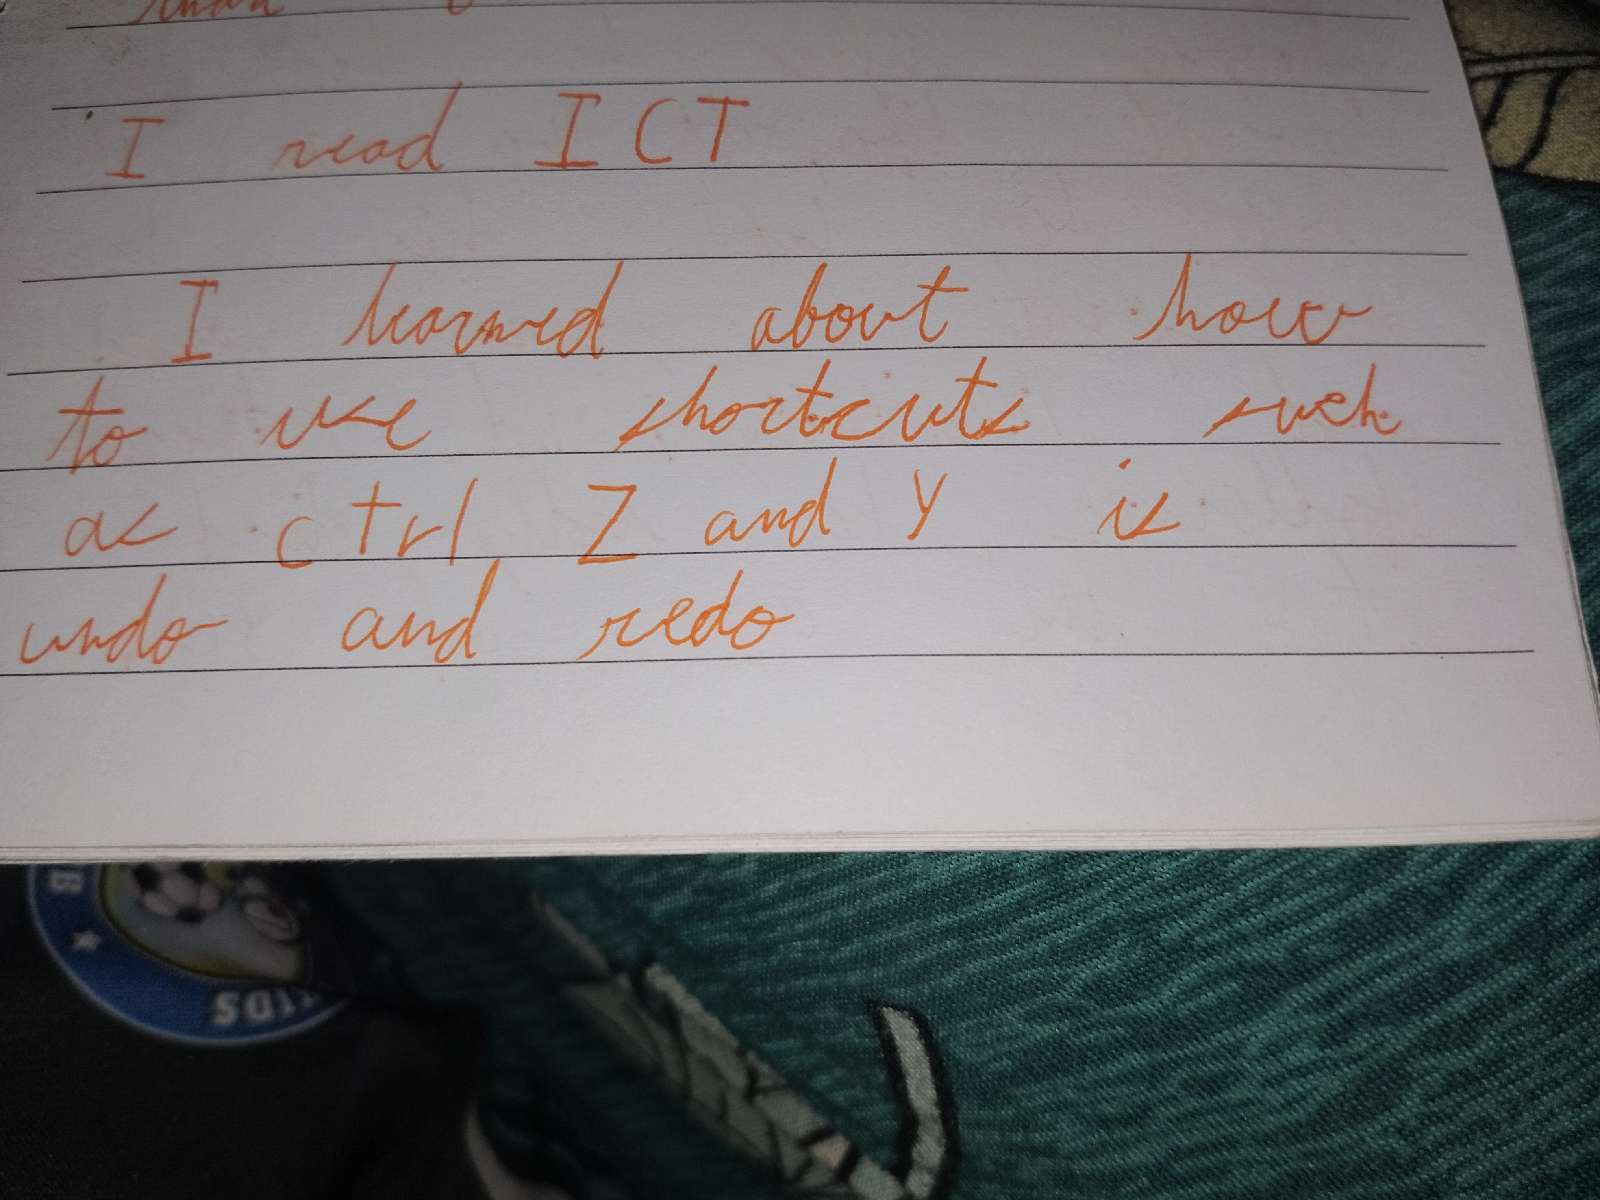 I read ICT
I learned about how
to use shortcuts such
as ctrl Z and y is
undo and redo
B ★
KIDS